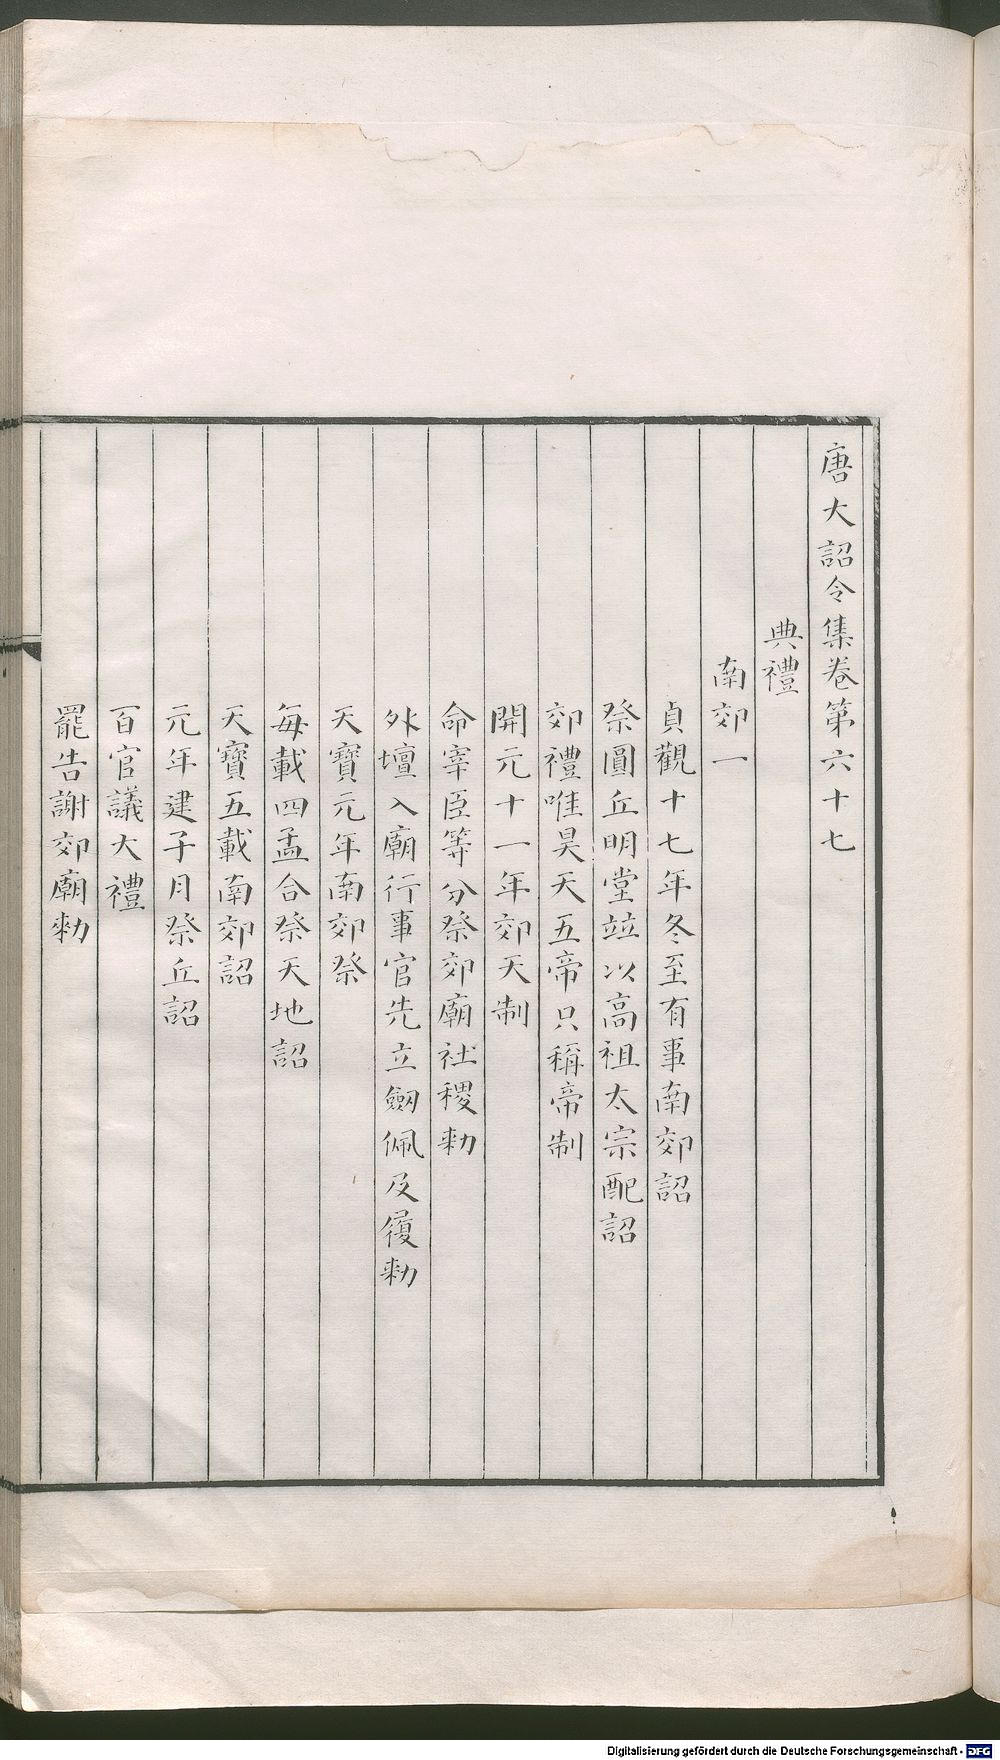 唐大詔令集卷第六十七
典禮
南郊一
貞觀十七年冬至有事南郊詔
祭圓丘明堂竝以高祖太宗配詔
郊禮唯昊天五帝只稱帝制
開元十一年郊天制
命宰臣等分祭郊廟社稷勑
外壇入廟行事官先立劔佩及履勑
天寶元年南郊祭
每載四孟合祭天地詔
天寶五載南郊詔
元年建子月祭丘詔
百官議大禮
罷告謝郊廟勑
Digitalisierung gefördert durch die Deutsche Forschungsgemeinschaft - DFG